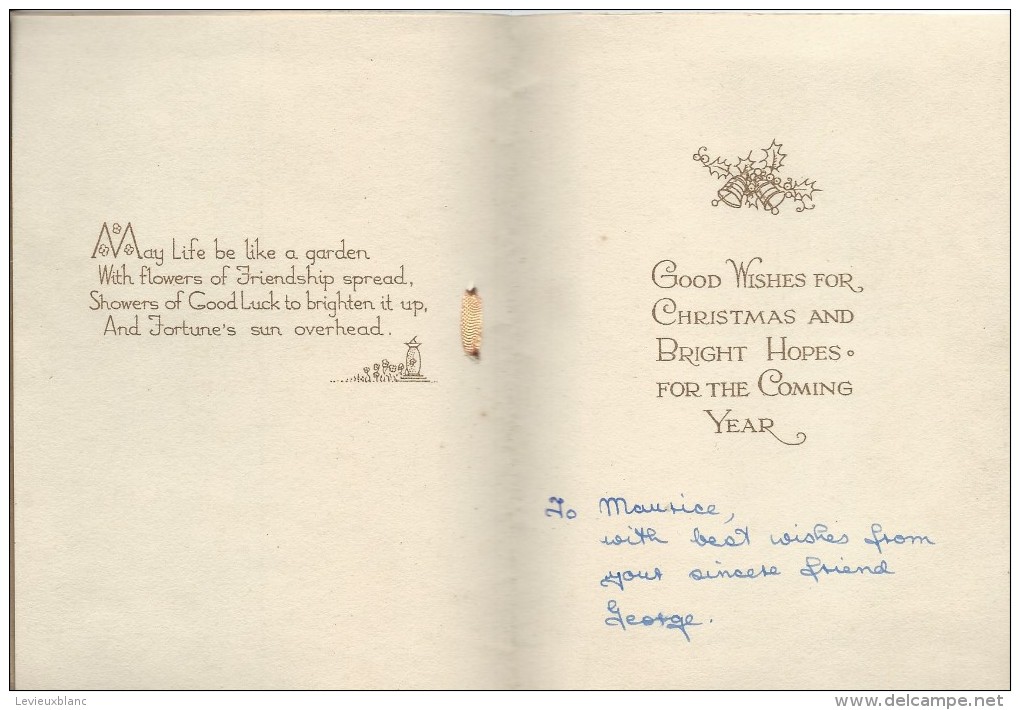 May Life be like a garden
With flowers of Friendship spread,
Showers of Good Luck to brighten it up,
And Fortune's sun overhead.
GOOD WISHES FOR
CHRISTMAS AND
BRIGHT HOPES
FOR THE COMING
YEAR
To Maurice,
with best wishes from
your sincere friend
George.
Levieuxblanc
www.delcampe.net